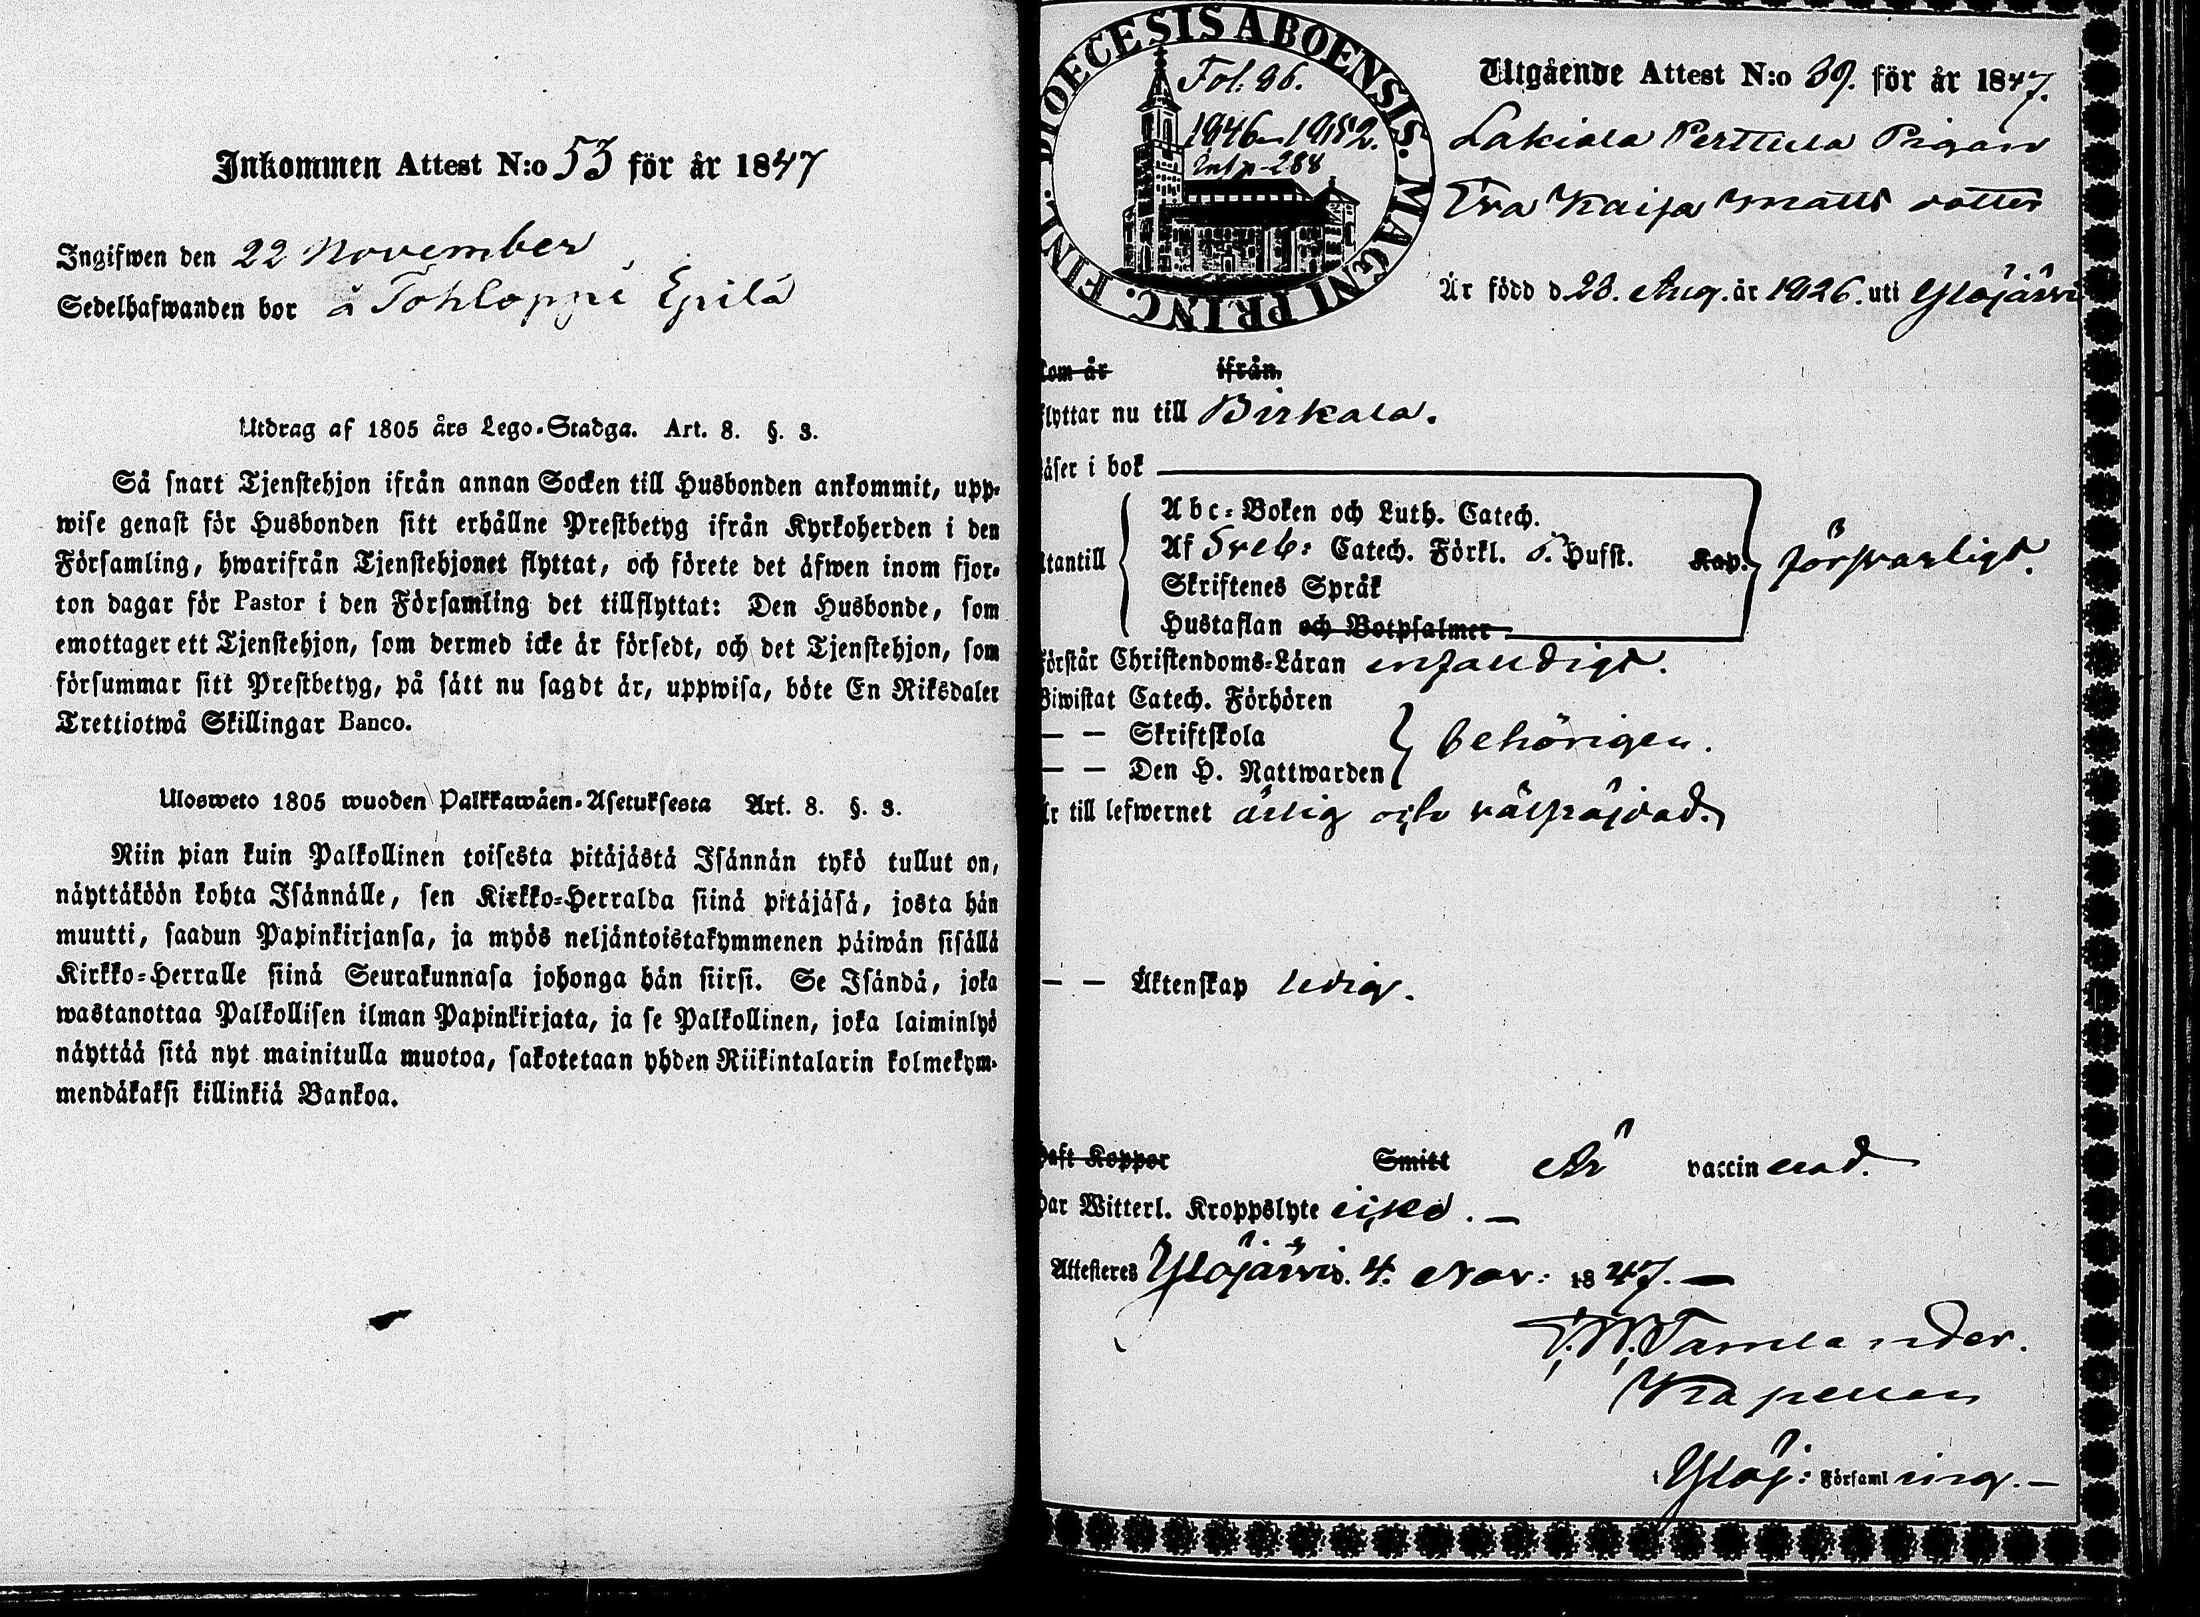 Inkommen Attest N:o 53 för år 1847
Ingifwen den 22 November
Sedelhafwanden bor å Tohloppi Epilä
Utdrag af 1805 års Lego-Stadga. Art. 8. §. 3.
Så snart Tjenstehjon ifrån annan Socken till Husbonden ankommit, upp-
wise genast för Husbonden sitt erhållne Prestbetyg ifrån Kyrkoherden i den
Församling, hwarifrån Tjenstehjonet flyttat, och förete det äfwen inom fjor-
ton dagar för Pastor i den Församling det tillflyttat: Den Husbonde, som
emottager ett Tjenstehjon, som dermed icke är försedt, och det Tjenstehjon, som
försummar sitt Prestbetyg, på sätt nu sagdt är, uppwisa, böte En Riksdaler
Trettiotwå Skillingar Banco.
Ulosweto 1805 wuoden Palkkawäen-Asetuksesta Art. 8. §. 3.
Niin pian kuin Palkollinen toisesta pitäjästä Isännän tykö tullut on,
näyttäköön kohta Isännälle, sen Kirkko-Herralda siinä pitäjäsä, josta hän
muutti, saadun Papinkirjansa, ja myös neljäntoistakymmenen päiwän sisällä
Kirkko-Herralle siinä Seurakunnasa johonga hän siirsi. Se Isändä, joka
wastanottaa Palkollisen ilman Papinkirjata, ja se Palkollinen, joka laiminlyö
näyttää sitä nyt mainitulla muotoa, sakotetaan yhden Riikintalarin kolmekym-
mendäkaksi killinkiä Bankoa.
DIOECESIS ABOENSIS. MAGNI PRINC. FINL.
Fol. 86.
1846-1852.
288
Utgående Attest N:o 39. för år 1847.
Lakiala Perttula Pigan
Eva Kaisa Matts dotter
Är född d. 23. Aug. år 1826. uti Ylöjärvi
kom år ifrån
flyttar nu till Birkala.
Läser i bok
Abc-Boken och Luth. Catech.
Utantill Af Sveb: Catech. Förkl. o. Hufst. Kap. försvarligt.
Skriftenes Språk
Hustaflan och Botpsalmer
Förstår Christendoms-Läran enfaldigt.
Biwistat Catech. Förhören
— — Skriftskola behörigen.
— — Den H. Nattwarden
Är till lefwernet ärlig och välfräjdad.
— — Äktenskap ledig.
Haft Koppor Smitt Är vaccinerad.
Har Witterl. Kroppslyte icke. —
Attesteres Ylöjärvi d. 4. Nov: 1847. —
Tamlander.
Kapellan
i Ylöj: Församling. —